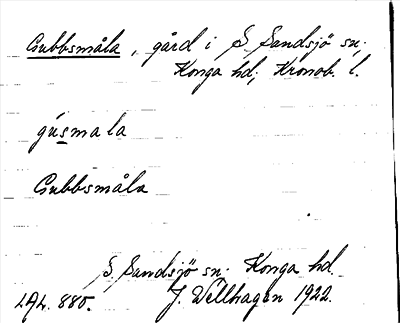 Gubbsmåla, gård i S. Sandsjö sn;
Konga hd; Kronob. l.
gúsmala
Gubbsmåla
S. Sandsjö sn. Konga hd
LAL. 880. J. Wellhagen 1922.